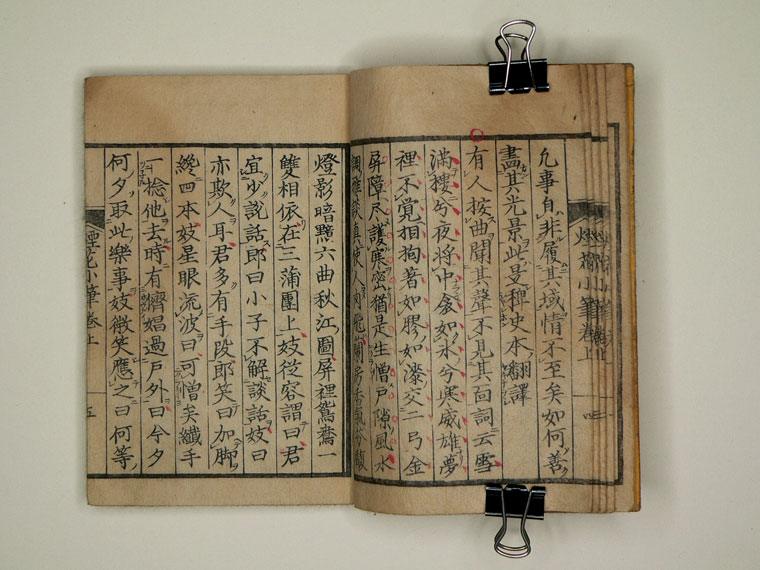 凢事自非履其域情不至矣如何善
盡其光景此是稗史本翻譯
有人按曲聞其聲不見其面詞云雪
滿樓兮夜將中衾如氷兮興威雄夢
裡不覺相拘著如膠如漆交二弓金
屏障尽護寒密猶是生憎戸隙風水
調雅談真使
燈影暗黯六曲秋江圖屏裡鴛鴦一
雙相依在三蒲團上妓從容謂曰君
宜少說話郎曰小子不解談話妓曰
亦欺人耳君多有手段郎笑曰加脚
纔四本妓星眼流波曰可憎矣纖手
一捻他去時有濟娼過戸外曰今夕
何夕取此樂事妓微笑應之曰何等
煙花小筆卷上
五
小筆卷上
四